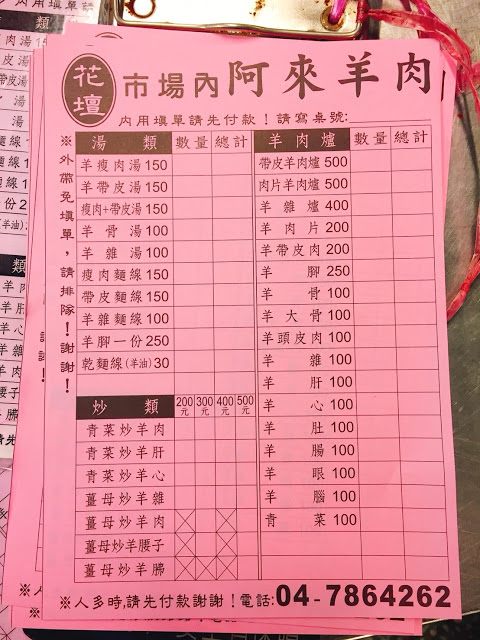 花壇 市場內 阿來羊肉
內用填單請先付款！請寫桌號:
※外帶免填單，請排隊！謝謝！
湯類 數量 總計
羊瘦肉湯 150
羊帶皮湯 150
瘦肉+帶皮湯 150
羊骨湯 100
羊雜湯 100
瘦肉麵線 150
帶皮麵線 150
羊雜麵線 100
羊腳一份 250
乾麵線(羊油) 30
炒類 200元 300元 400元 500元
青菜炒羊肉
青菜炒羊肝
青菜炒羊心
薑母炒羊雜
薑母炒羊肉
薑母炒羊腰子
薑母炒羊肺
羊肉爐 數量 總計
帶皮羊肉爐 500
肉片羊肉爐 500
羊雜爐 400
羊肉片 200
羊帶皮肉 200
羊腳 250
羊骨 100
羊大骨 100
羊頭皮肉 100
羊雜 100
羊肝 100
羊心 100
羊肚 100
羊腸 100
羊眼 100
羊腦 100
青菜 100
※人多時,請先付款謝謝！電話:04-7864262